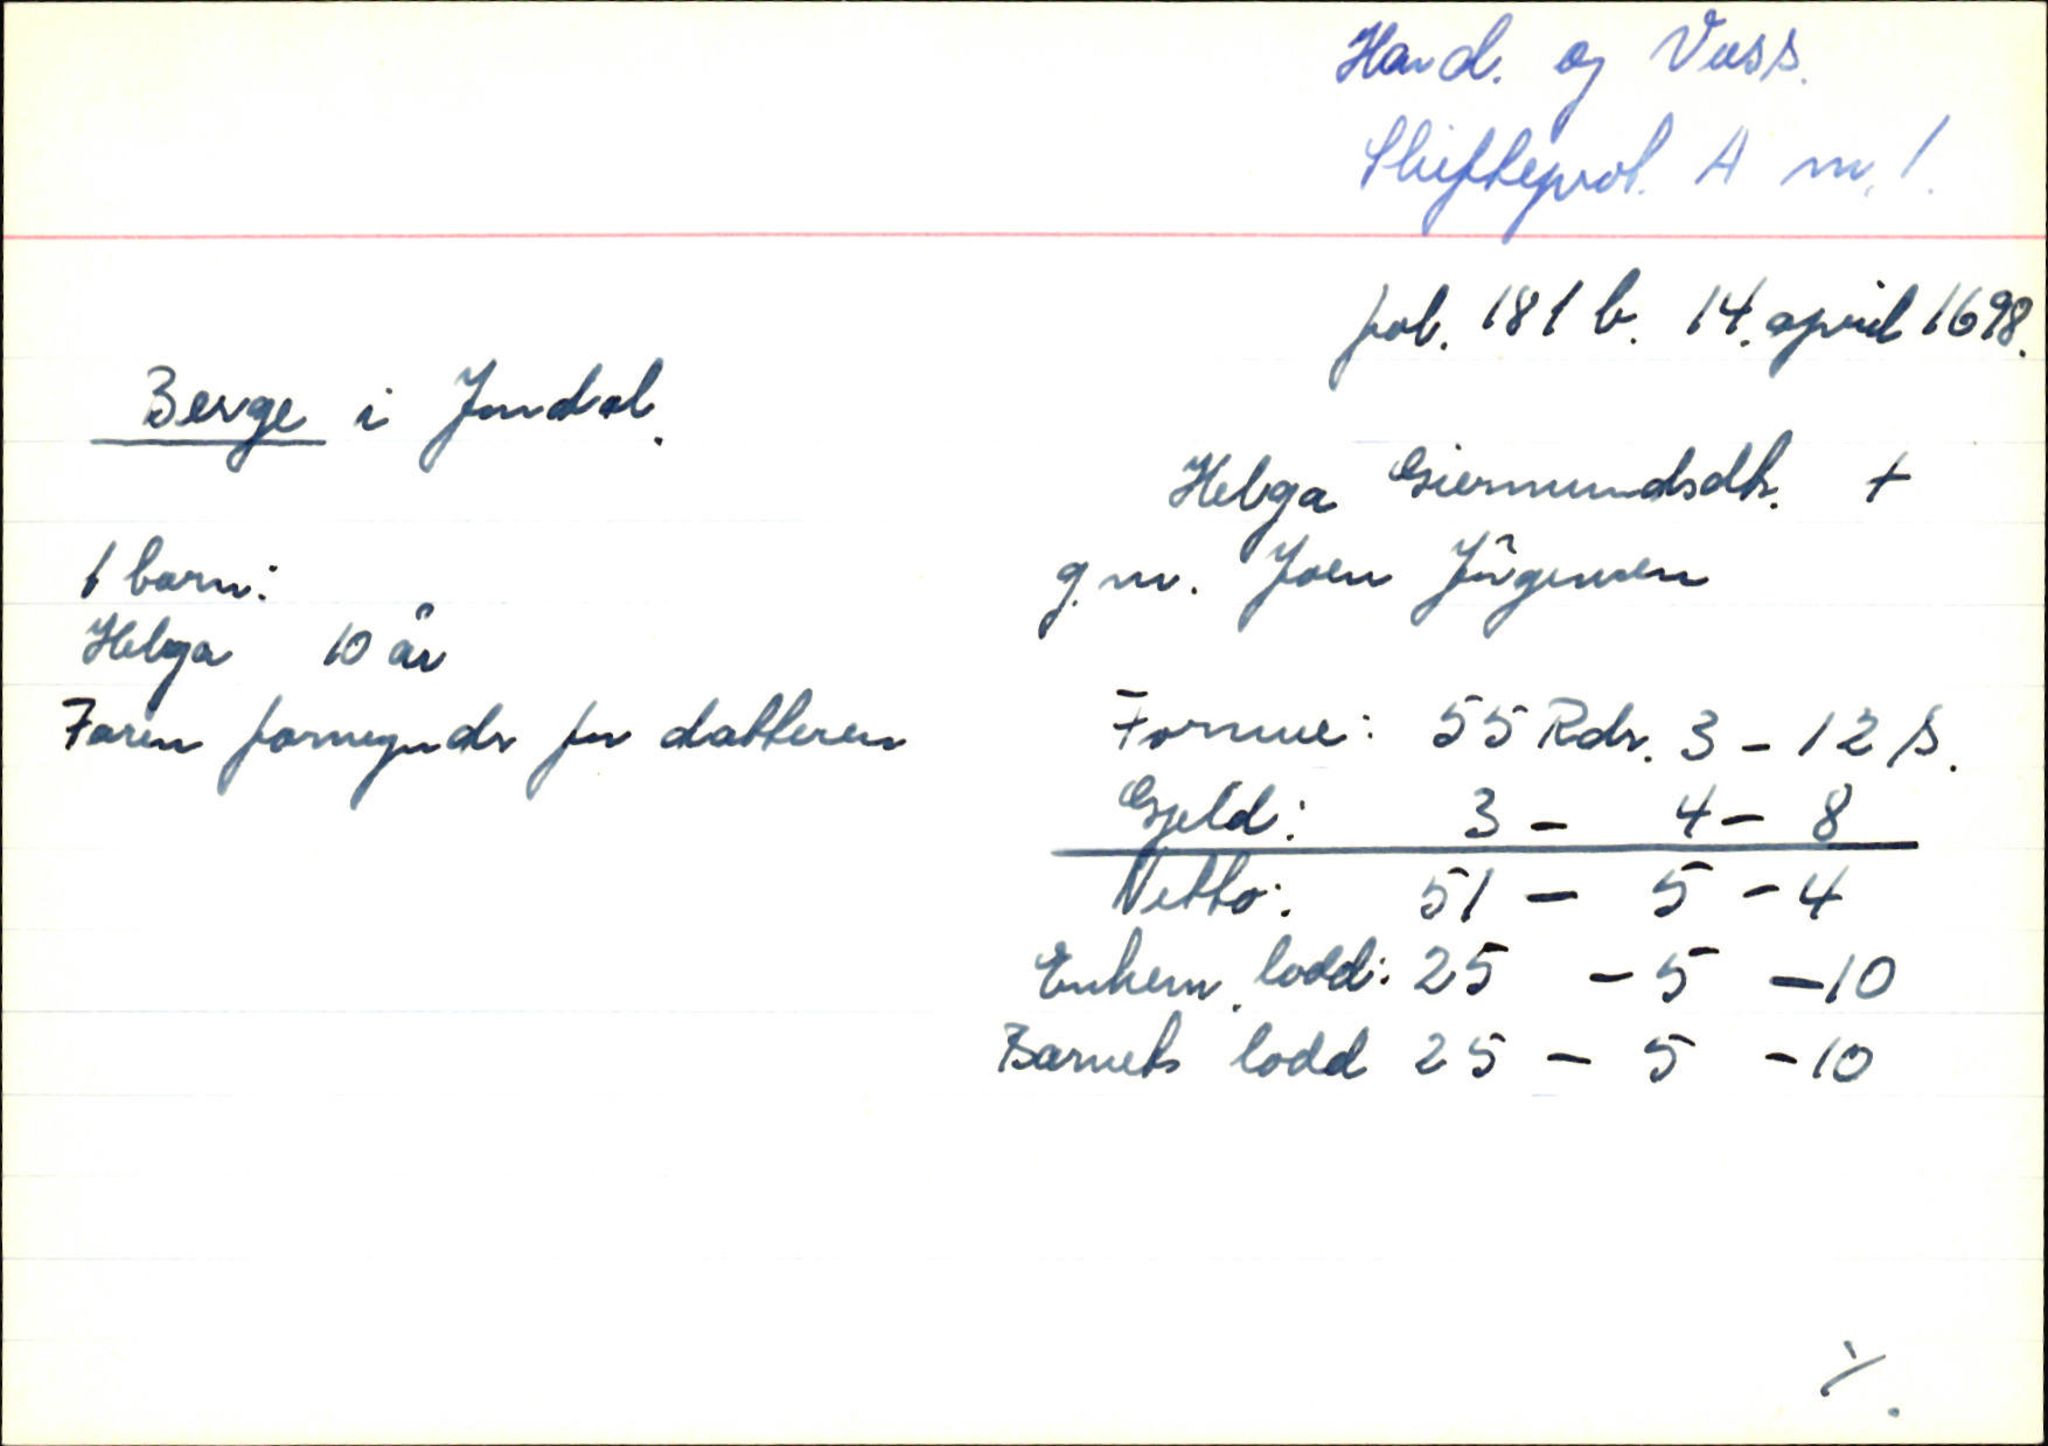 Hard. og Voss.
Skifteprot. A nr. 1.
fol. 181 b. 14. april 1698.
Berge i Jondal.
Helga Giermundsdtr. +
g.m. Joen Jörgensen
1 barn:
Helga 10 år
Faren formynder for datteren
Formue: 55 Rdr. 3 - 12 s.
Gjeld: 3 - 4 - 8
Netto: 51 - 5 - 4
Enkem. lodd: 25 - 5 - 10
Barnets lodd 25 - 5 - 10